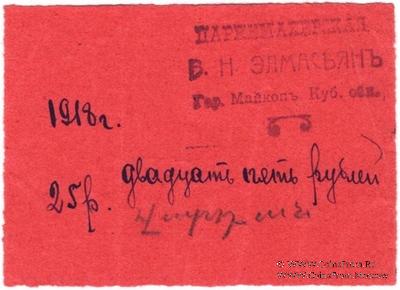 ПАРИКМАХЕРСКАЯ
В. Н. ЭЛМАСЬЯНЪ
Гор. Майкопъ Куб. обл.,
1918 г.
25 р. двадцать пять рублей